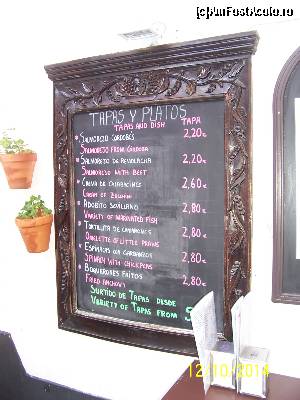 [c]AmFostAcolo.ro
TAPAS Y PLATOS
TAPAS AND DISH TAPA
SALMOREJO CORDOBÉS 2,20€
SALMOREJO FROM CORDOBA
SALMOREJO DE REMOLACHA 2,20€
SALMOREJO WITH BEET
CREMA DE CALABACINES 2,60€
CREAM OF ZUCCHINI
ADOBITO SEVILLANO 2,80€
VARIETY OF MARINATED FISH
TORTILLITA DE CAMARONES 2,80€
OMELETTE OF LITTLE PRAWS
ESPINACAS CON GARBANZOS 2,80€
SPINASH WITH CHICKPENS
BOQUERONES FRITOS 2,80€
FRIED ANCHOVY
SURTIDO DE TAPAS DESDE
VARIETY OF TAPAS FROM
12/10/2014